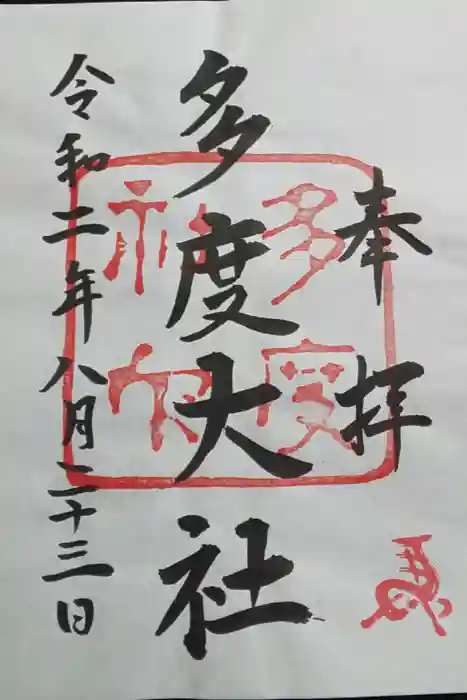 奉拝
多度大社
令和二年八月二十三日
多度
神社